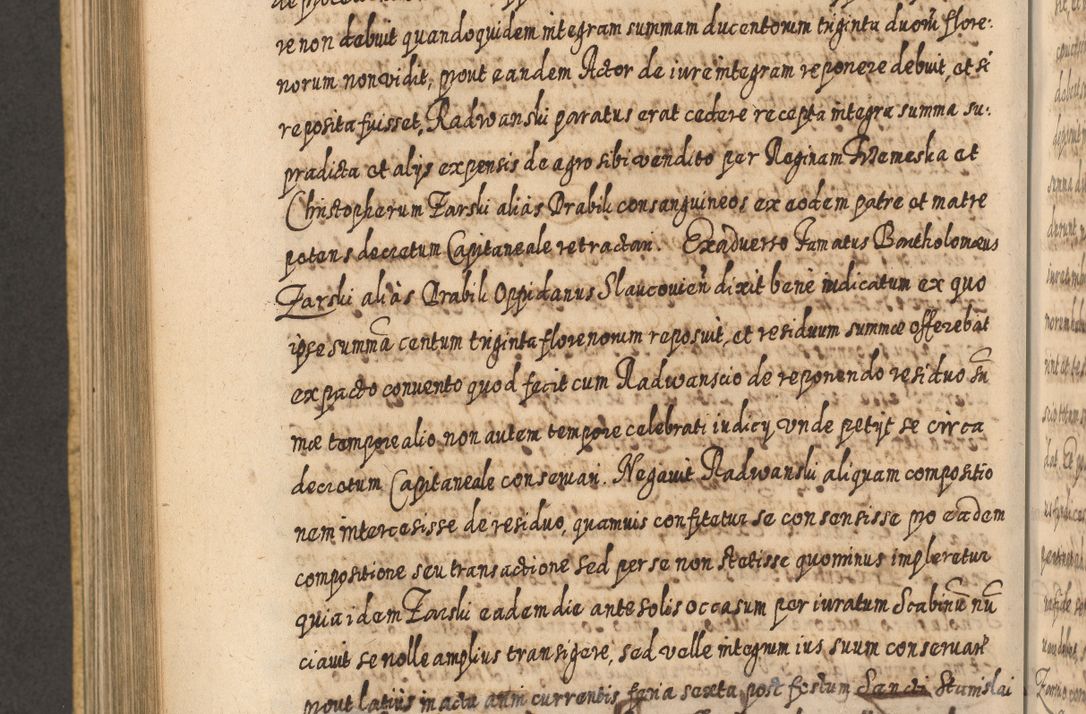 re non debuit quandoquidem integram summam ducentorum triginta duorũ flore:
norum non vidit, prout eandem Actor de iure integram reponere debuit, et si
reposita fuisset, Radwanski paratus erat cedere recepta integra summa su:
pradicta et alijs expensis de agro sibi vendito per Reginam et
Christopherum Zarski aliàs Drabik consanguineos ex eodem patre et matre
potens decretum Capitaneale retractari. Ex adverso Famatus Bartholomæus
Zarski aliàs Drabik Oppidanus Slaucovien̄ dixit bene iudicatum ex quo
ipse summã centum triginta florenorum reposuit, et residuum summæ offerebat
ex pacto convento quod fecit cum Radwanscio de reponendo residuo sũ
mæ tempore alio non autem tempore celebrati iudicy, vnde petijt se circa
decretum Capitaneale conservari. Negavit Radwanski aliquam compositio
nem intercesisse de residuo, quamvis confitetur se consensisse pro eadem
compositione seu transactione sed per se non stetisse quominus impleretur
quia idem Zarski eadem die ante solis occasum per iuratum Scabinũ nũ
ciavit se nolle amplius transigere, sed velle integrum ius suum conservare
prout latius in actu anni currentis feria sexta post festum Sancti Stanislai